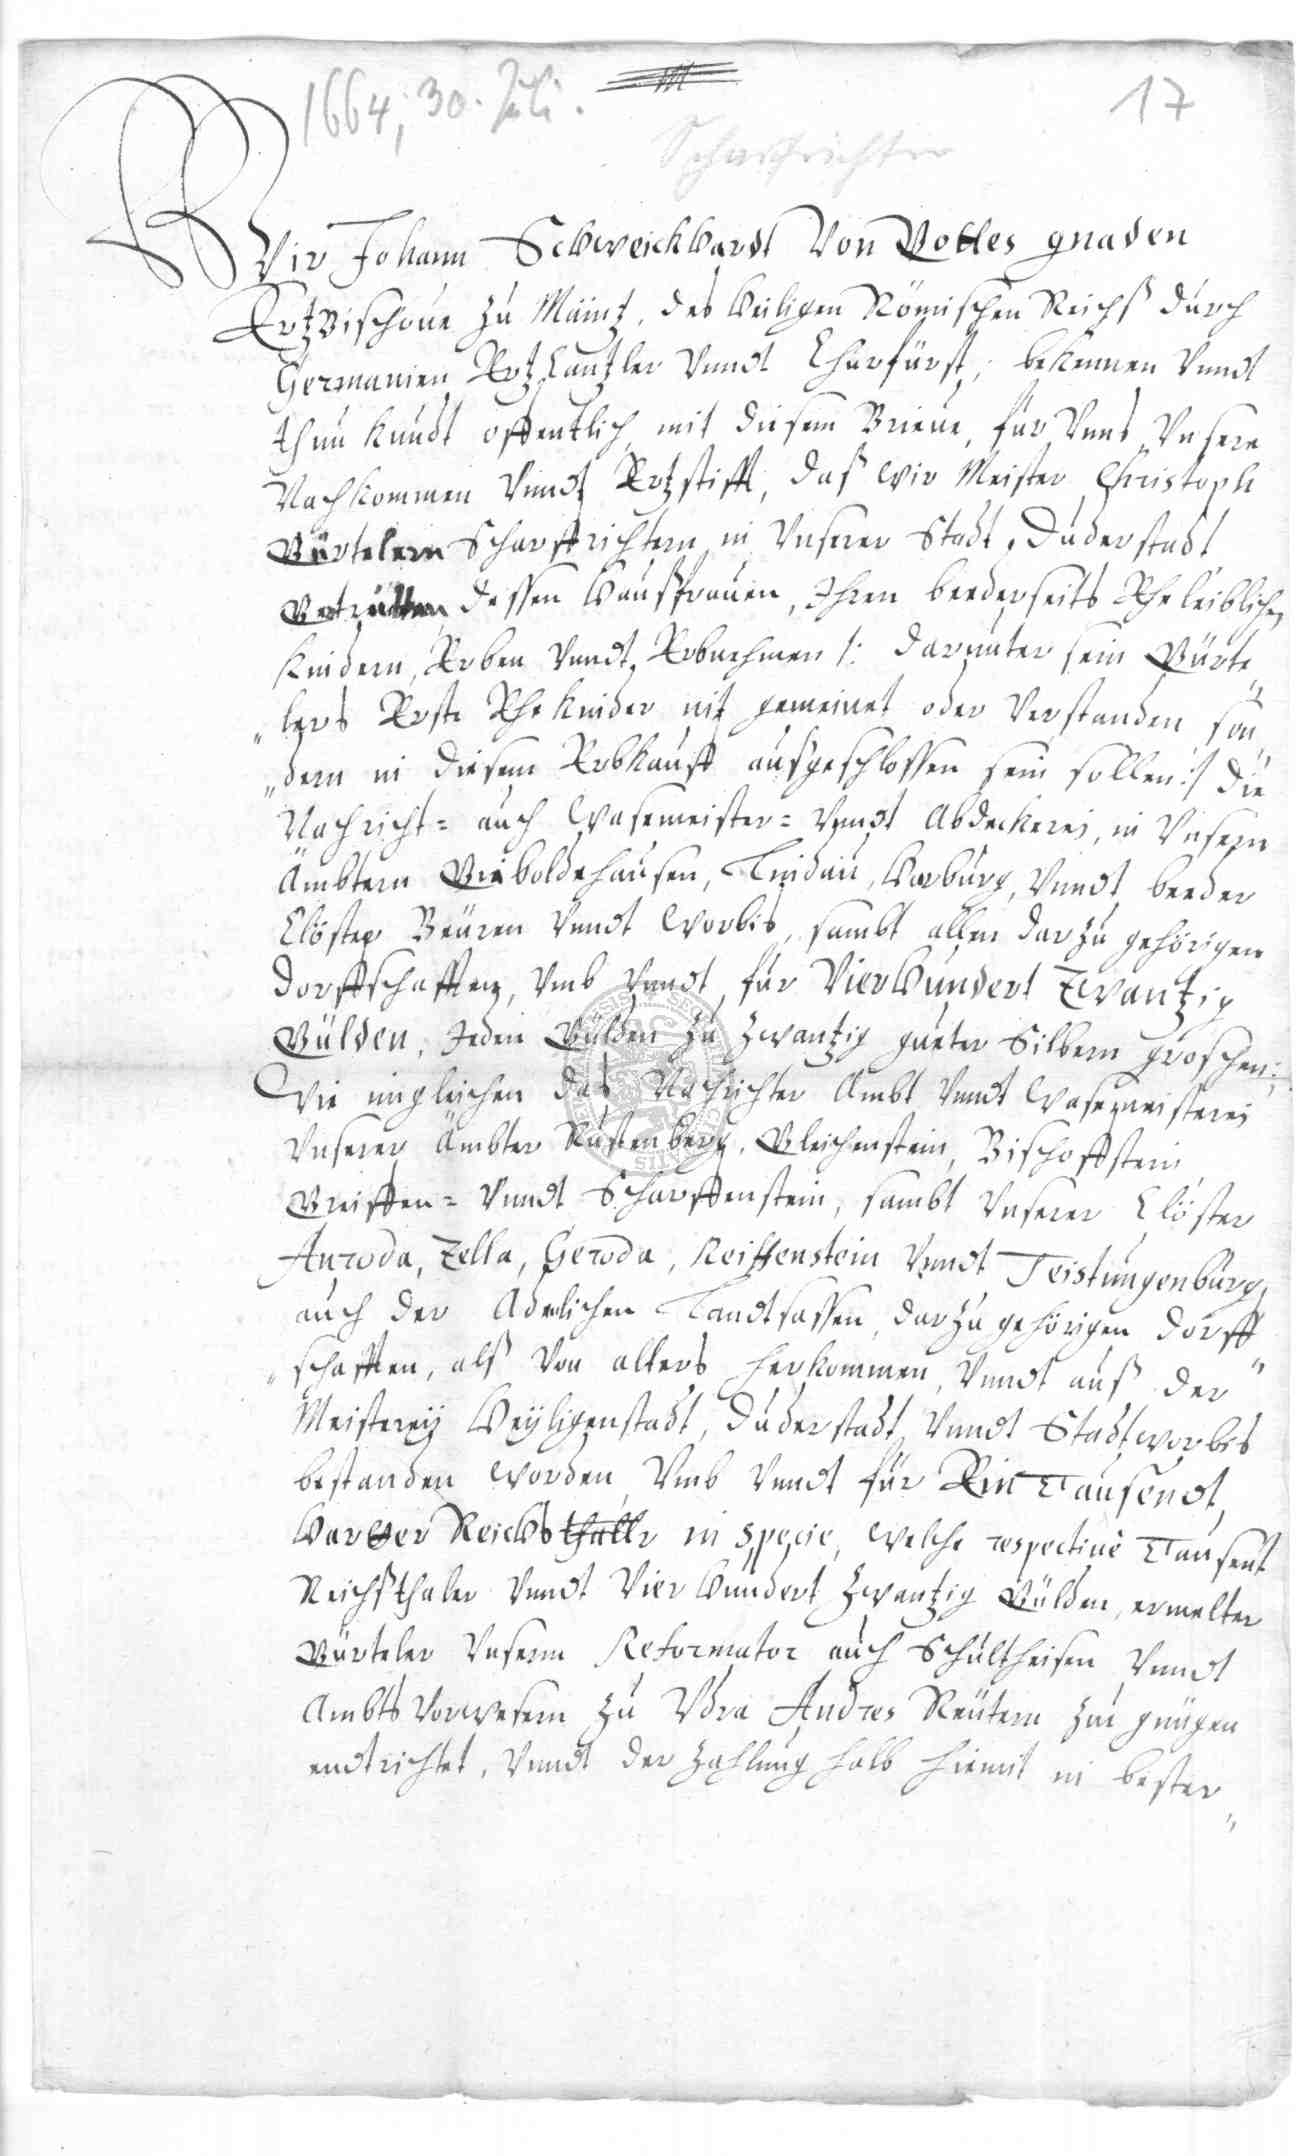 1664, 30. Juli.
17
Scharfrichter
Wir Johann Schweickhardt Von Gottes gnaden
Ertzbischoue zu Maintz, des heiligen Römischen Reichs durch
Germanien Ertz Cantzler Vnndt Churfürst, bekennen Vnndt
thun kundt offentlich mit diesem Brieue, für Vnns Vnsere
Nachkommen Vnndt Ertzstifft, daß wir Meister Christoph
Gürtelern Scharffrichtern in Vnserer Stadt Duderstadt
dessen haußfrauen, Ihren beederseits Eheleiblichen
Kindern, Erben Vnndt Erbnehmen /: darunter sein Gürte„
„lers Erste Ehe Kinder nit gemeinet oder Verstanden son„
„dern in diesem Erbkauff außgeschlossen sein sollen :/ die
Nachricht= auch Wasemeister= Vnndt Abdeckerei, in Vnsern
Ämbtern Gieboldehausen, Lindau, Harburg, Vnndt beeder
Clöster Beüren Vnndt Worbis, sambt allen darzu gehörigen
dorffschafften, Vmb Vnndt für Vierhundert Zwantzig
Gülden, Jeden Gülden zu zwantzig gueter Silbern groschen:
Wie ingleichen das Nachrichter Ambt Vnndt Wasemeisterei
Vnserer Ämbter Rustenberg, Gleichenstein, Bischoffstein
Greiffen= Vnndt Scharffenstein, sambt Vnserer Clöster
Anroda, Zella, Geroda, Reiffenstein Vnndt Teistungenburg,
auch der Adelichen Landtsassen, darzu gehörigen dorff„
„schafften, alß Von alters herkommen, Vnndt auß der
Meisterey Heyligenstadt, Duderstadt Vnndt Stadtworbis
bestanden worden, Vmb Vnndt für Ein Tausendt,
harter Reichsthallr in specie, welche respectiuè Tausent
Reichsthaler Vnndt Vierhundert Zwantzig Gülden, ermelter
Gürteler Vnserm Reformator auch Schultheisen Vnndt
Ambts Verwesern zu Vdra Andres Reütern zur gnügen
endtrichtet, Vnndt der Zahlung halb hiemit in bester„